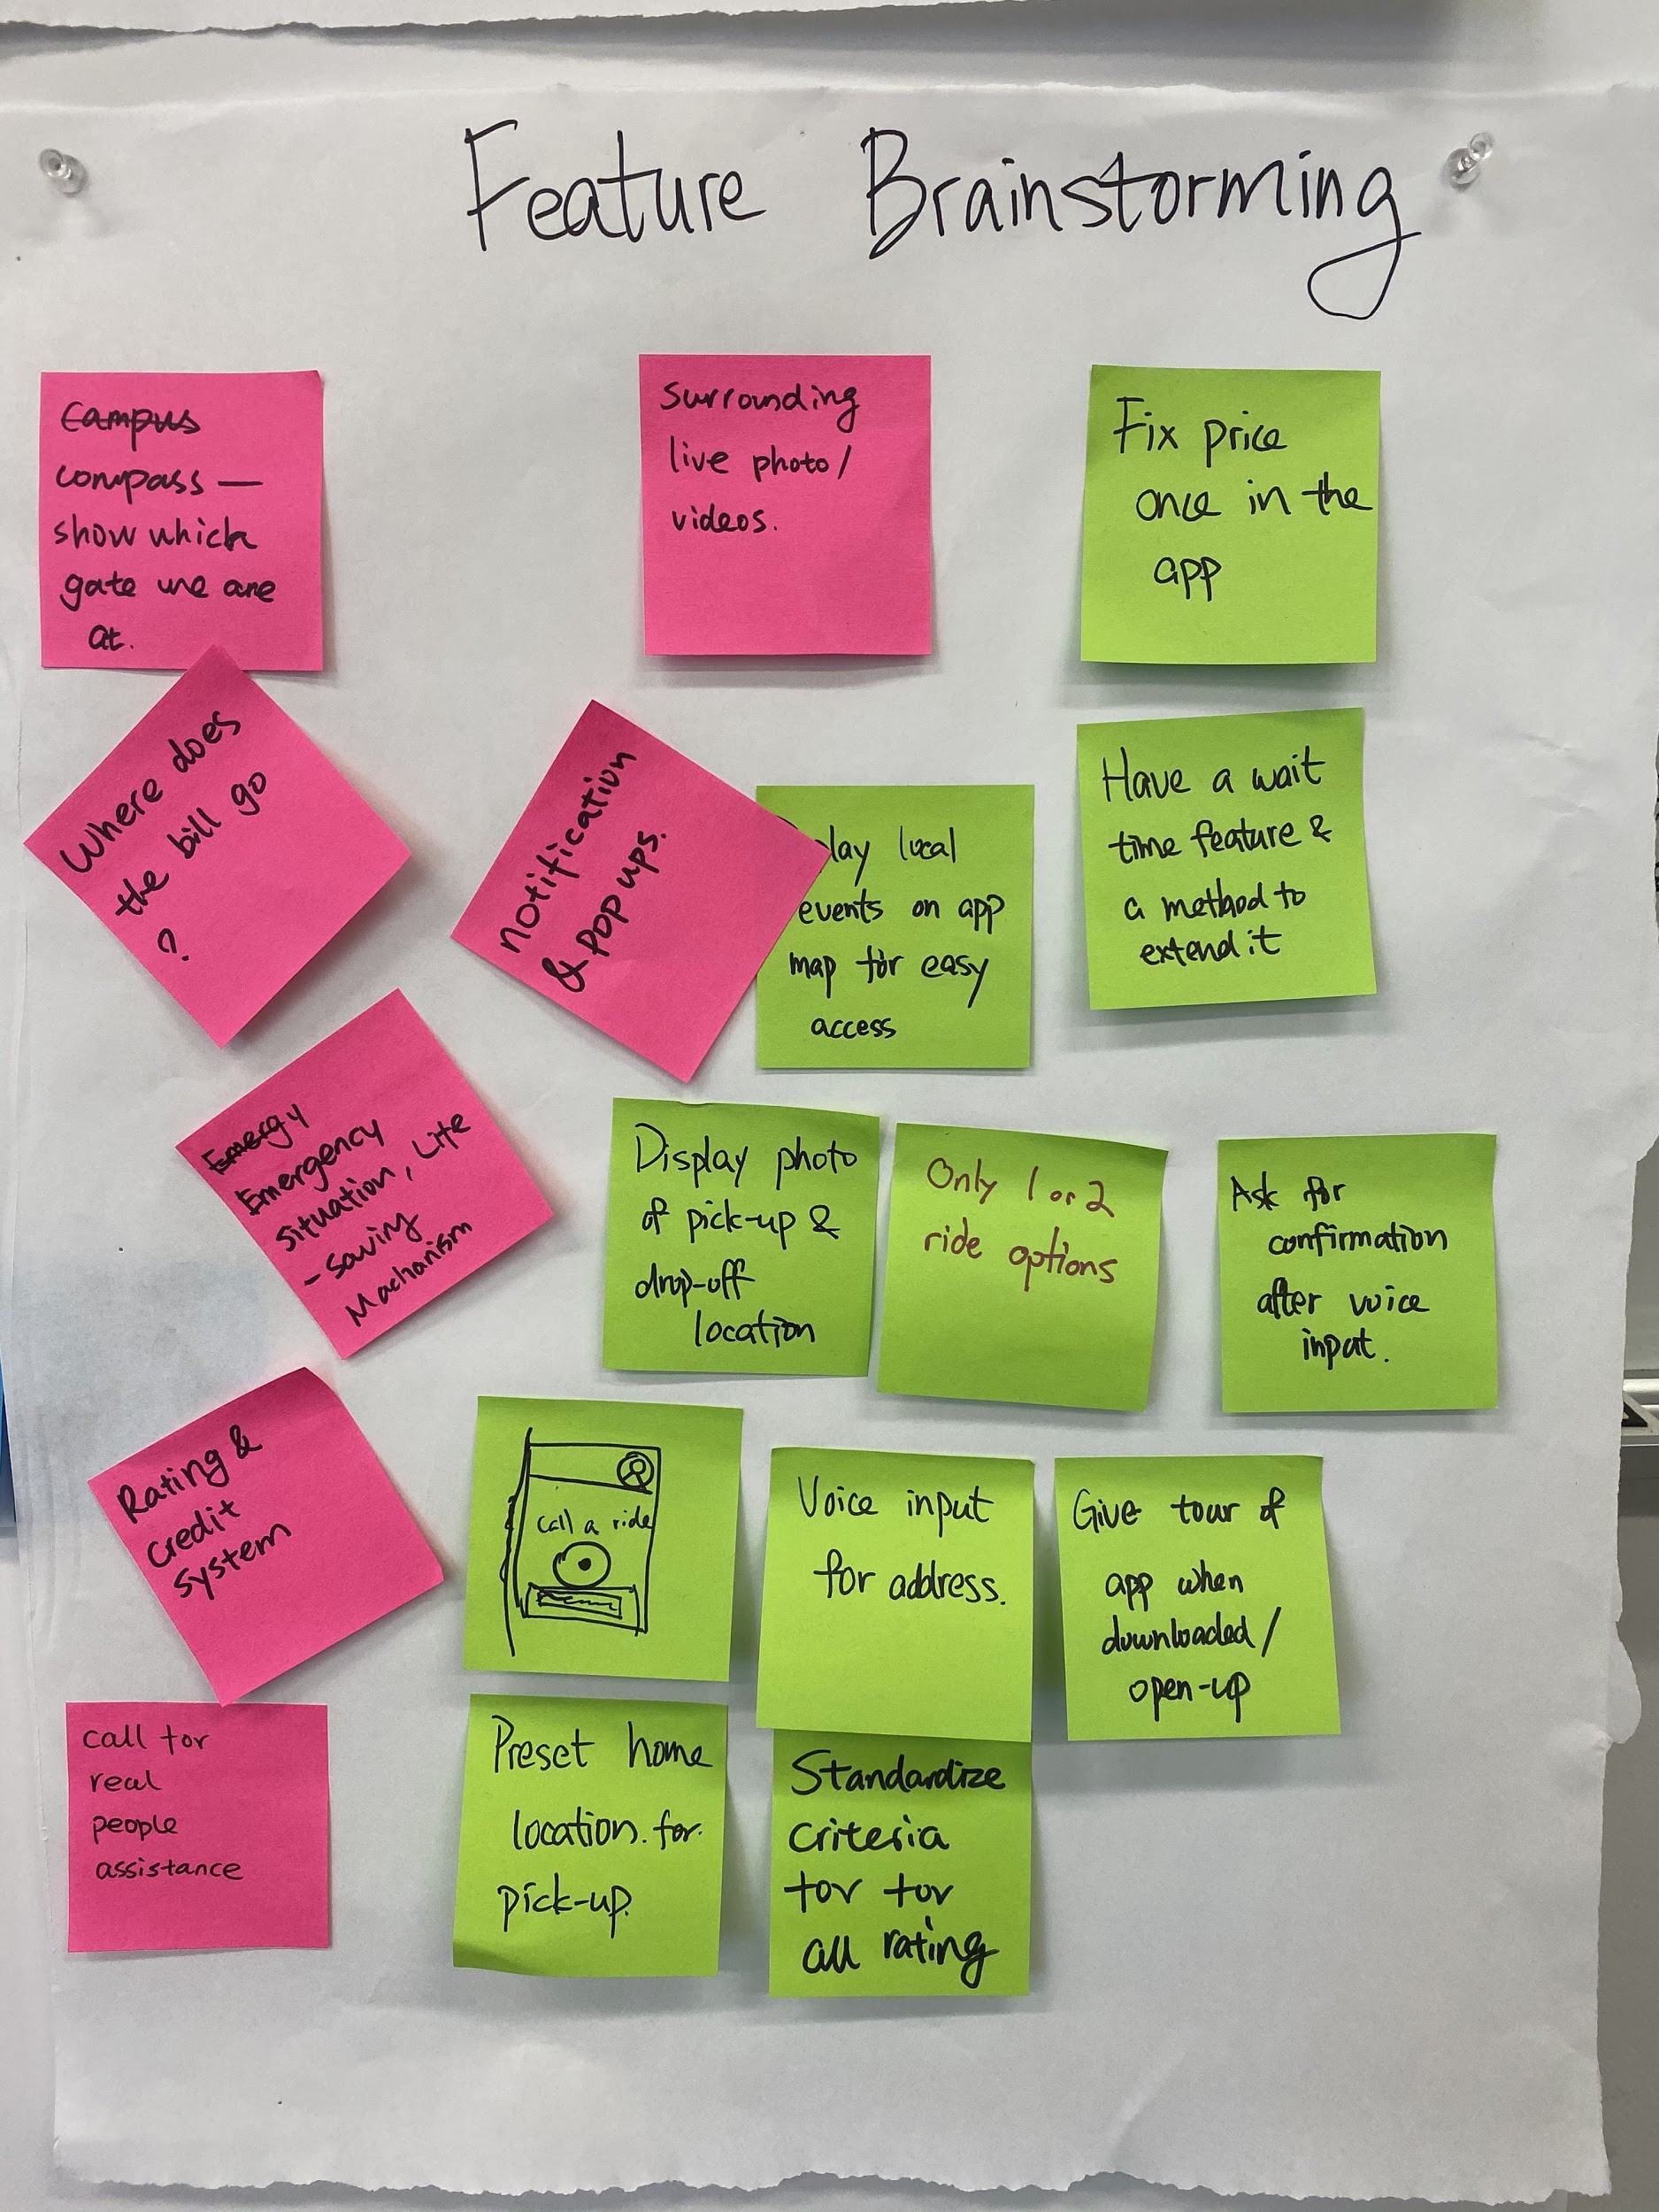 Feature Brainstorming
Campus
compass —
show which
gate we are
at.
surrounding
live photo/
videos.
Fix price
once in the
app
Where does
the bill go
?
notification
& pop ups.
lay local
events on app
map for easy
access
Have a wait
time feature &
a method to
extend it
Emergy
Emergency
situation, Life
-saving
Machanism
Display photo
of pick-up &
drop-off
location
Only 1 or 2
ride options
Ask for
confirmation
after voice
input.
Rating &
credit
system
call a ride
Voice input
for address.
Give tour of
app when
downloaded/
open-up
call for
real
people
assistance
Preset home
location for
pick-up.
Standardize
criteria
for for
all rating